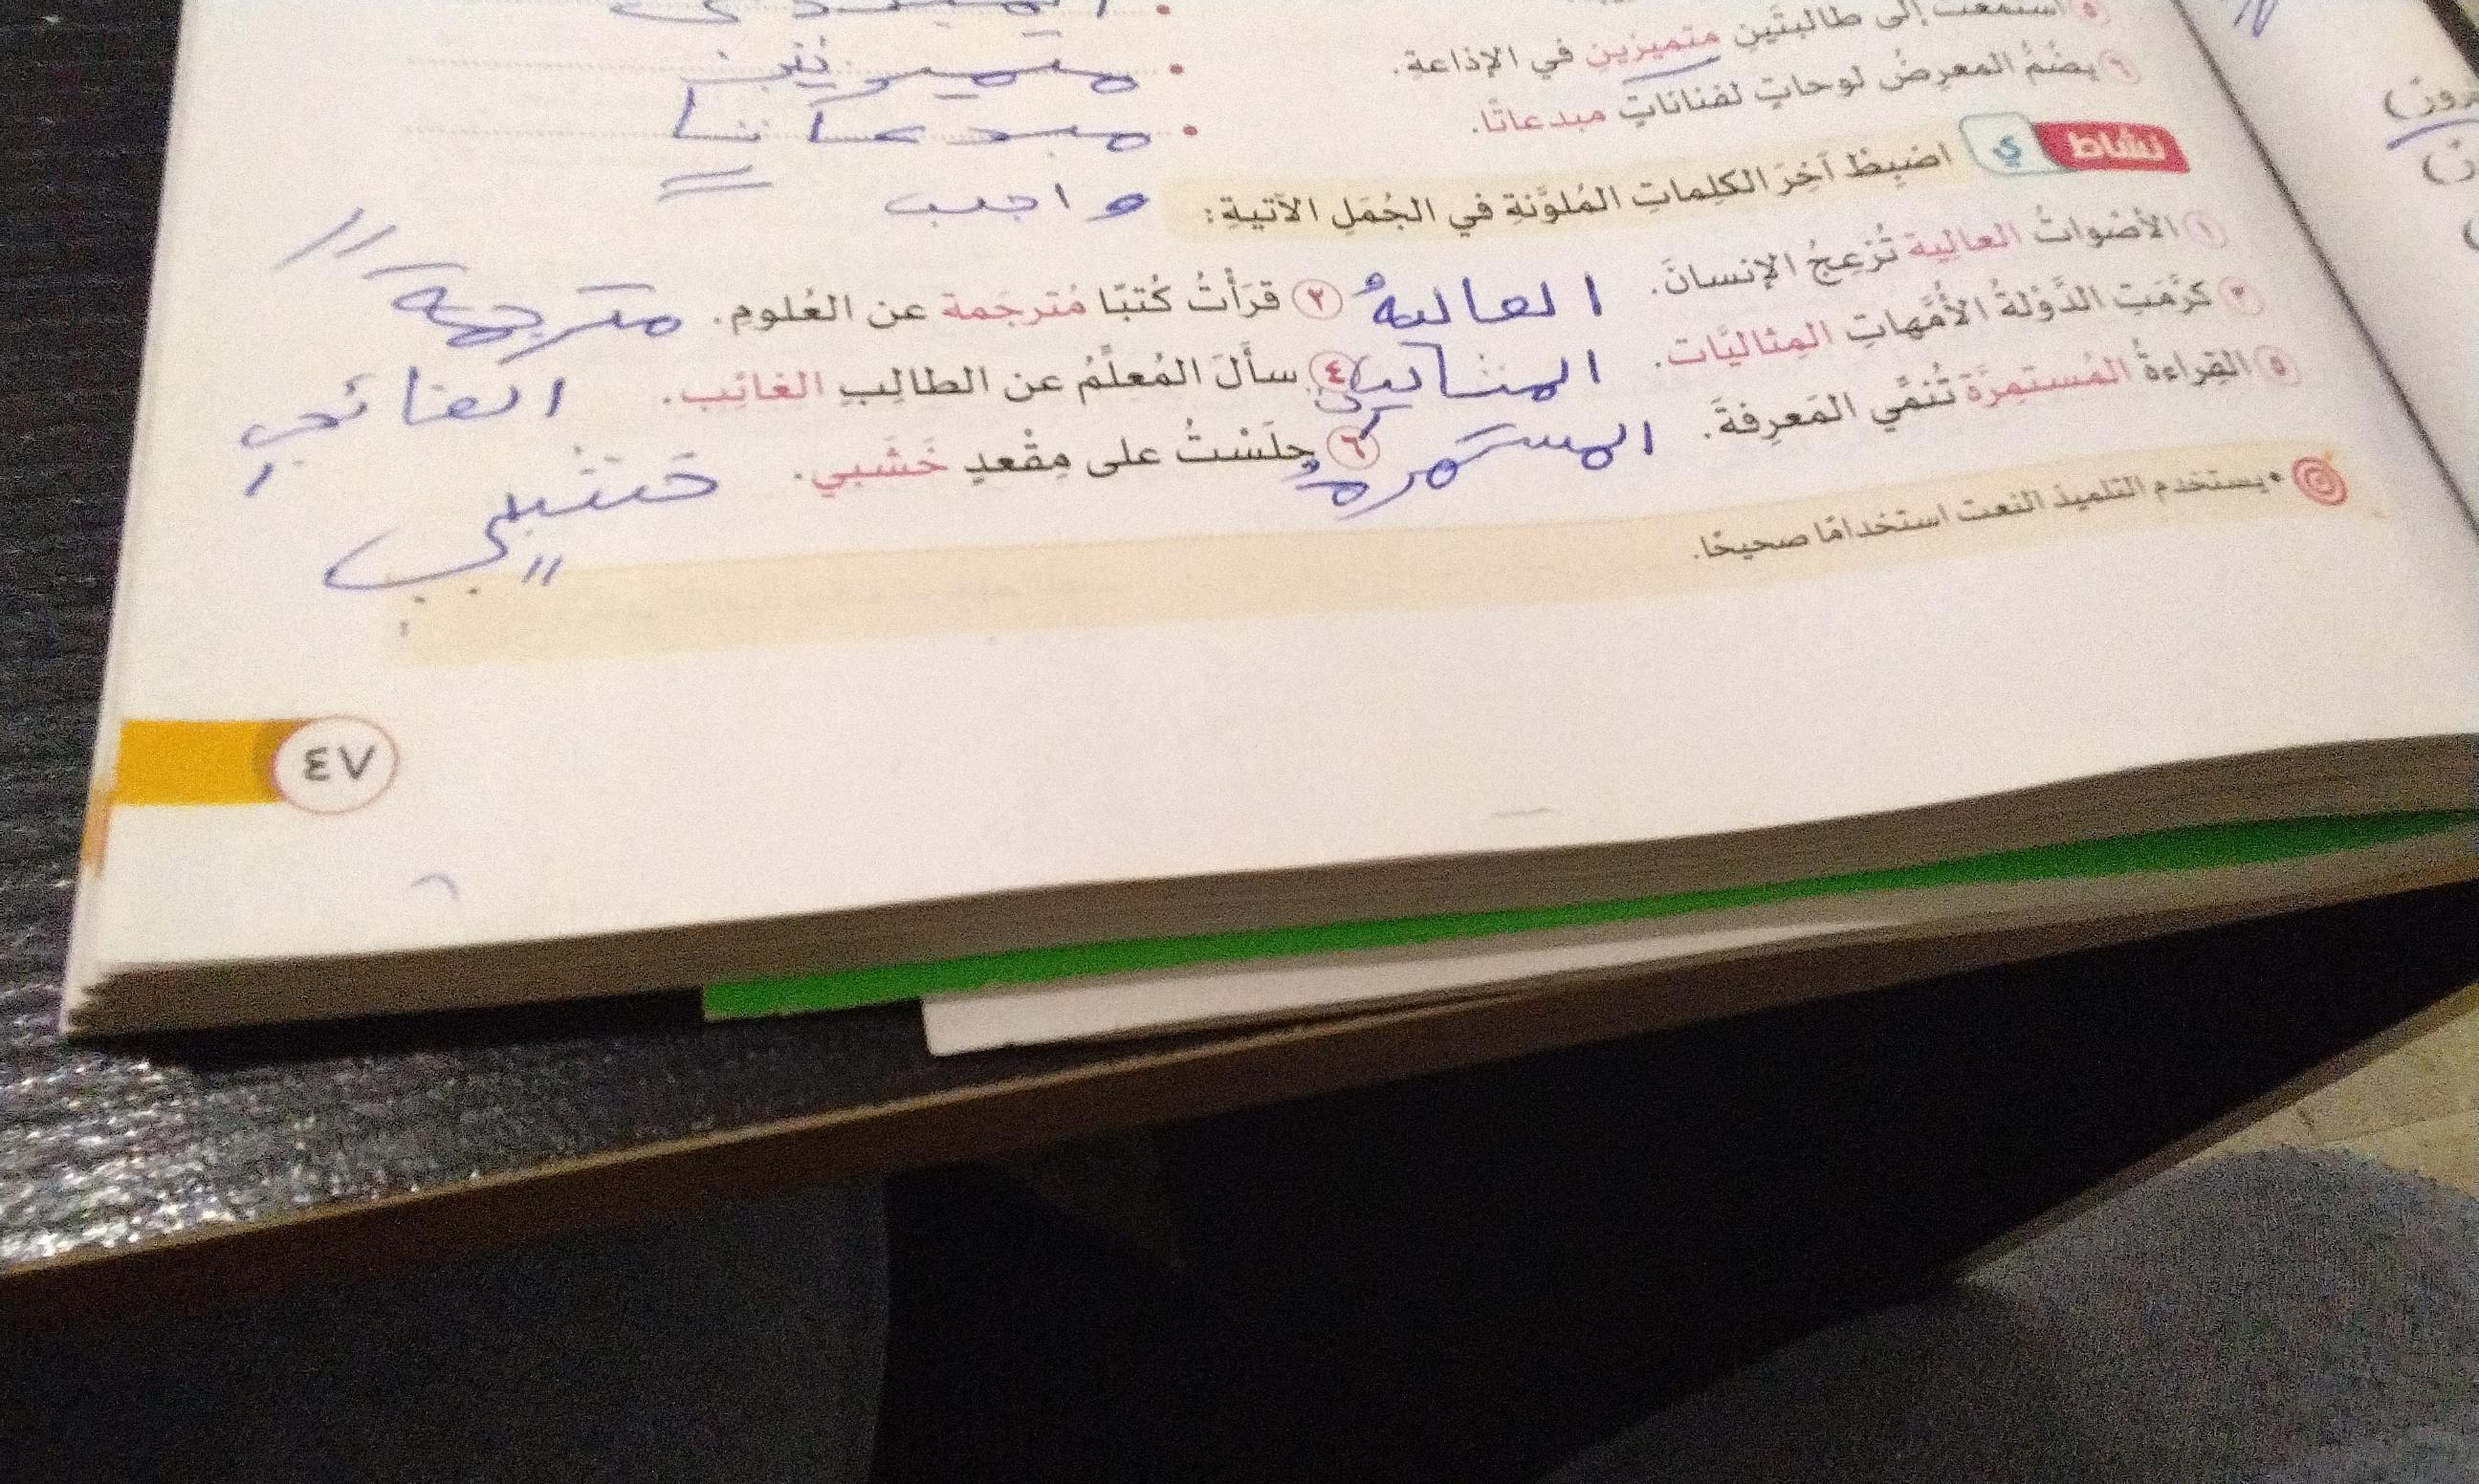 إلى طالبتَينِ متميزينِ في الإذاعة.
متميزتين
٦ يضُمُّ المعرِضُ لوحاتٍ لفناناتٍ مبدعاتًا.
مبدعاتا
نشاط ي اضبِطْ آخِرَ الكلِماتِ المُلوَّنةِ في الجُمَلِ الآتيةِ: واجب
١ الأصْواتُ العالِية تُزعِجُ الإنسانَ. العاليةُ
٢ قرَأْتُ كُتبًا مُترجَمة عن العُلومِ. مترجمة
٣ كرَّمَتِ الدَّوْلةُ الأُمَّهاتِ المِثاليَّات.
٤ سأَلَ المُعلِّمُ عن الطالِبِ الغائِب. الغائبِ
٥ القِراءةُ المُستمِرَّة تُنمِّي المَعرِفةَ. المستمرةُ
٦ جلَسْتُ على مِقْعدٍ خَشَبي. خشبيٍ
• يستخدم التلميذ النعت استخدامًا صحيحًا.
٤٧